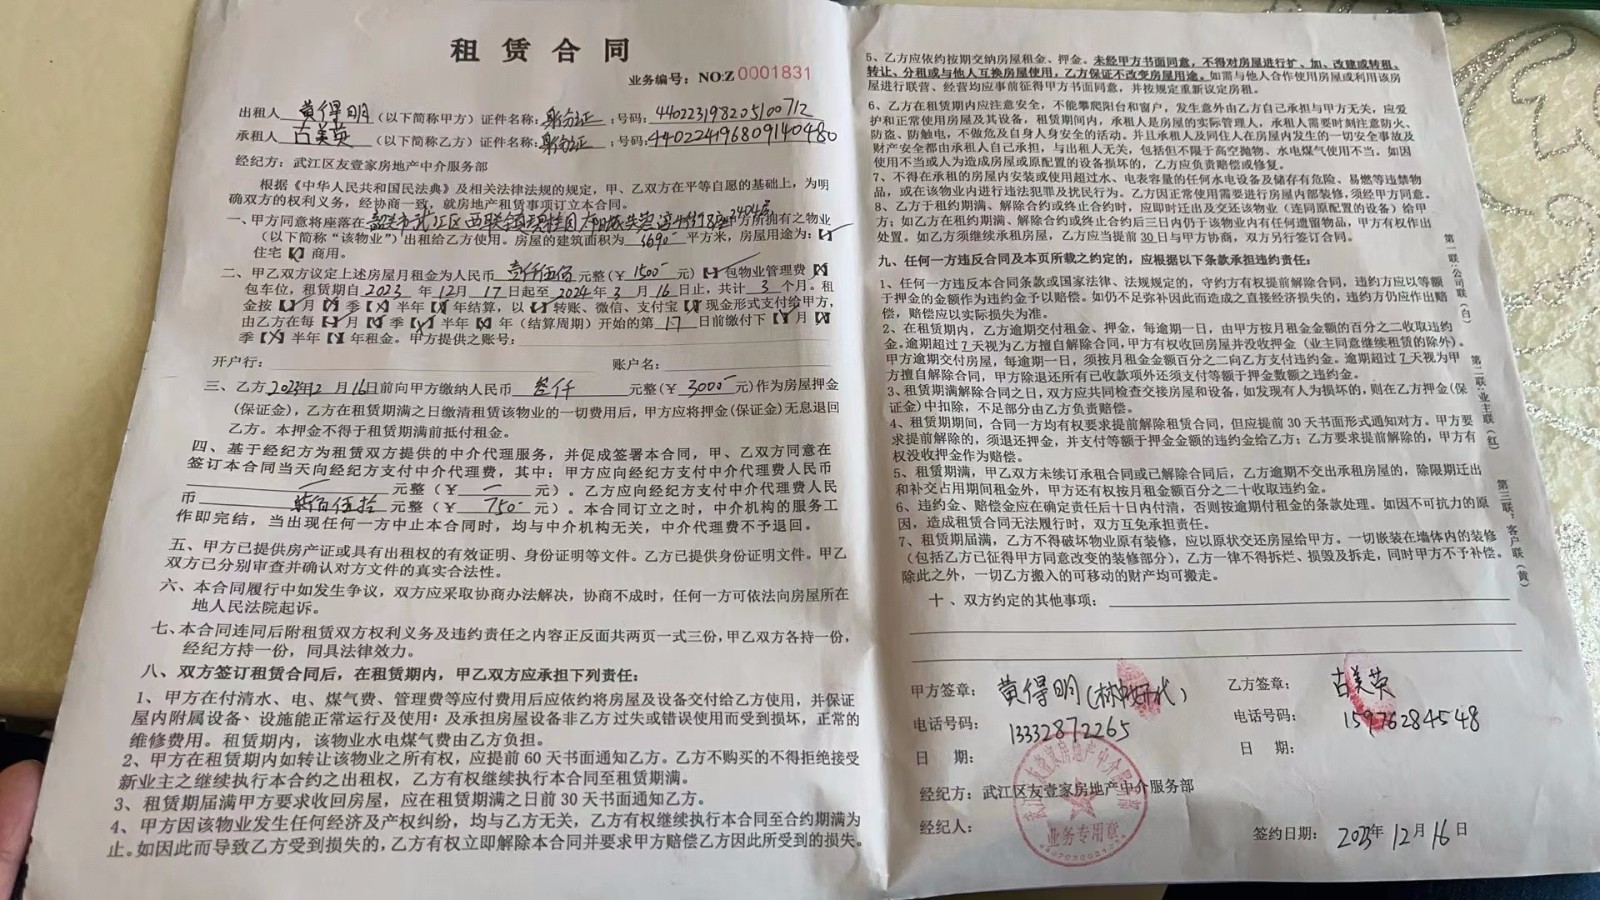 租赁合同
业务编号：NO:Z 0001831
出租人 黄得明 （以下简称甲方）证件名称：身份证；号码：440223198205100712
承租人 古美英 （以下简称乙方）证件名称：身份证；号码：440224196809140480
经纪方：武江区友壹家房地产中介服务部
根据《中华人民共和国民法典》及相关法律法规的规定，甲、乙双方在平等自愿的基础上，为明
确双方的权利义务，经协商一致，就房地产租赁事项订立本合同。
一、甲方同意将座落在韶关市武江区西联镇碧桂园太阳城 甲方所拥有之物业
（以下简称“该物业”）出租给乙方使用。房屋的建筑面积为 平方米，房屋用途为：【✓】
住宅【】商用。
二、甲乙双方议定上述房屋月租金为人民币 壹仟伍佰 元整（￥ 1500 元）【】包物业管理费【】
包车位，租赁期自2023年12月17日起至2024年3月16日止，共计3个月。租
金按【】月【】季【】半年【】年结算，以【】转账、微信、支付宝【】现金形式支付给甲方，
由乙方在每【】月【】季【】半年【】年（结算周期）开始的第17日前缴付下【】月【】
季【】半年【】年租金。甲方提供之账号：
开户行： 账户名：
三、乙方2023年12月16日前向甲方缴纳人民币 叁仟 元整（￥ 3000 元）作为房屋押金
（保证金），乙方在租赁期满之日缴清租赁该物业的一切费用后，甲方应将押金（保证金）无息退回
乙方。本押金不得于租赁期满前抵付租金。
四、基于经纪方为租赁双方提供的中介代理服务，并促成签署本合同，甲、乙双方同意在
签订本合同当天向经纪方支付中介代理费，其中：甲方应向经纪方支付中介代理费人民币
一 元整（￥ 一 元）。乙方应向经纪方支付中介代理费人民
币 柒佰伍拾 元整（￥ 750 元）。本合同订立之时，中介机构的服务工
作即完结，当出现任何一方中止本合同时，均与中介机构无关，中介代理费不予退回。
五、甲方已提供房产证或具有出租权的有效证明、身份证明等文件。乙方已提供身份证明文件。甲乙
双方已分别审查并确认对方文件的真实合法性。
六、本合同履行中如发生争议，双方应采取协商办法解决，协商不成时，任何一方可依法向房屋所在
地人民法院起诉。
七、本合同连同后附租赁双方权利义务及违约责任之内容正反面共两页一式三份，甲乙双方各持一份，
经纪方持一份，同具法律效力。
八、双方签订租赁合同后，在租赁期内，甲乙双方应承担下列责任：
1、甲方在付清水、电、煤气费、管理费等应付费用后应依约将房屋及设备交付给乙方使用，并保证
屋内附属设备、设施能正常运行及使用；及承担房屋设备非乙方过失或错误使用而受到损坏，正常的
维修费用。租赁期内，该物业水电煤气费由乙方负担。
2、甲方在租赁期内如转让该物业之所有权，应提前60天书面通知乙方。乙方不购买的不得拒绝接受
新业主之继续执行本合约之出租权，乙方有权继续执行本合同至租赁期满。
3、租赁期届满甲方要求收回房屋，应在租赁期满之日前30天书面通知乙方。
4、甲方因该物业发生任何经济及产权纠纷，均与乙方无关，乙方有权继续执行本合同至合约期满为
止。如因此而导致乙方受到损失的，乙方有权立即解除本合同并要求甲方赔偿乙方因此所受到的损失。
5、乙方应依约按期交纳房屋租金、押金。未经甲方书面同意，不得对房屋进行扩、加、改建或转租、
转让、分租或与他人互换房屋使用，乙方保证不改变房屋用途。如需与他人合作使用房屋或利用该房
屋进行联营、经营均应事前征得甲方书面同意，并按规定重新议定房租。
6、乙方在租赁期内应注意安全，不能攀爬阳台和窗户，发生意外由乙方自己承担与甲方无关，应爱
护和正常使用房屋及其设备，租赁期间内，承租人是房屋的实际管理人，承租人需要时刻注意防火、
防盗、防触电，不做危及自身人身安全的活动。并且承租人及同住人在房屋内发生的一切安全事故及
财产安全都由承租人自己承担，与出租人无关，包括但不限于高空抛物、水电煤气使用不当。如因
使用不当或人为造成房屋或原配置的设备损坏的，乙方应负责赔偿或修复。
7、不得在承租的房屋内安装或使用超过水、电表容量的任何水电设备及储存有危险、易燃等违禁物
品，或在该物业内进行违法犯罪及扰民行为。乙方因正常使用需要进行房屋内部装修，须经甲方同意。
8、乙方于租约期满、解除合约或终止合约时，应即时迁出及交还该物业（连同原配置的设备）给甲
方；如乙方在租约期满、解除合约或终止合约后三日内仍于该物业内有任何遗留物品，甲方有权作出
处置。如乙方须继续承租房屋，乙方应当提前30日与甲方协商，双方另行签订合同。
九、任何一方违反合同及本页所载之约定的，应根据以下条款承担违约责任：
1、任何一方违反本合同条款或国家法律、法规规定的，守约方有权提前解除合同，违约方应以等额
于押金的金额作为违约金予以赔偿。如仍不足弥补因此而造成之直接经济损失的，违约方仍应作出赔
偿，赔偿应以实际损失为准。
2、在租赁期内，乙方逾期交付租金、押金，每逾期一日，由甲方按月租金金额的百分之二收取违约
金。逾期超过7天视为乙方擅自解除合同，甲方有权收回房屋并没收押金（业主同意继续租赁的除外）。
甲方逾期交付房屋，每逾期一日，须按月租金金额百分之二向乙方支付违约金。逾期超过7天视为甲
方擅自解除合同，甲方除退还所有已收款项外还须支付等额于押金数额之违约金。
3、租赁期满解除合同之日，双方应共同检查交接房屋和设备，如发现有人为损坏的，则在乙方押金（保
证金）中扣除，不足部分由乙方负责赔偿。
4、租赁期期间，合同一方均有权要求提前解除租赁合同，但应提前30天书面形式通知对方。甲方要
求提前解除的，须退还押金，并支付等额于押金金额的违约金给乙方；乙方要求提前解除的，甲方有
权没收押金作为赔偿。
5、租赁期满，甲乙双方未续订承租合同或已解除合同后，乙方逾期不交出承租房屋的，除限期迁出
和补交占用期间租金外，甲方还有权按月租金额百分之二十收取违约金。
6、违约金、赔偿金应在确定责任后十日内付清，否则按逾期付租金的条款处理。如因不可抗力的原
因，造成租赁合同无法履行时，双方互免承担责任。
7、租赁期届满，乙方不得破坏物业原有装修，应以原状交还房屋给甲方。一切嵌装在墙体内的装修
（包括乙方已征得甲方同意改变的装修部分），乙方一律不得拆烂、损毁及拆走，同时甲方不予补偿。
除此之外，一切乙方搬入的可移动的财产均可搬走。
十、双方约定的其他事项：
甲方签章：黄得明
电话号码：13332872265
日 期：
乙方签章：古美英
电话号码：15976284548
日 期：
经纪方：武江区友壹家房地产中介服务部
经纪人：
签约日期：2023年12月16日
武江区友壹家房地产中介服务部
业务专用章
第一联：公司联（白）
第二联：业主联（红）
第三联：客户联（黄）